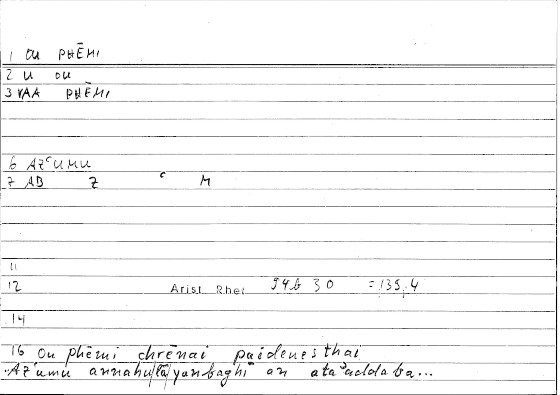 1 OU PHĒMI
2 U OU
3 VAA PHĒMI
6 AZʿUMU
7 AB Z ʿ M
11
12 Arist Rhet 94b 30 =135,4
14
16 Ou phēmi chrēnai paideuesthai
Azʿumu annahu/lā/yanbaghī an ataʾaddaba...